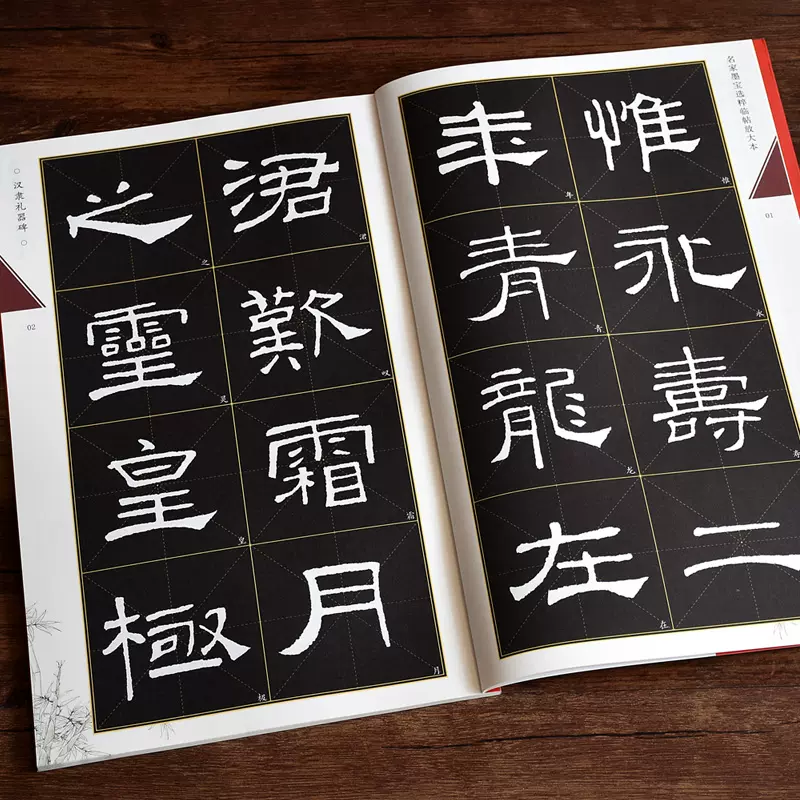 名家墨宝选粹临帖放大本
01
惟永壽二
惟
永
寿
年青龍在
年
青
龙
在
涒歎霜月
涒
叹
霜
月
之靈皇極
之
灵
皇
极
○ 汉隶礼器碑 ○
02